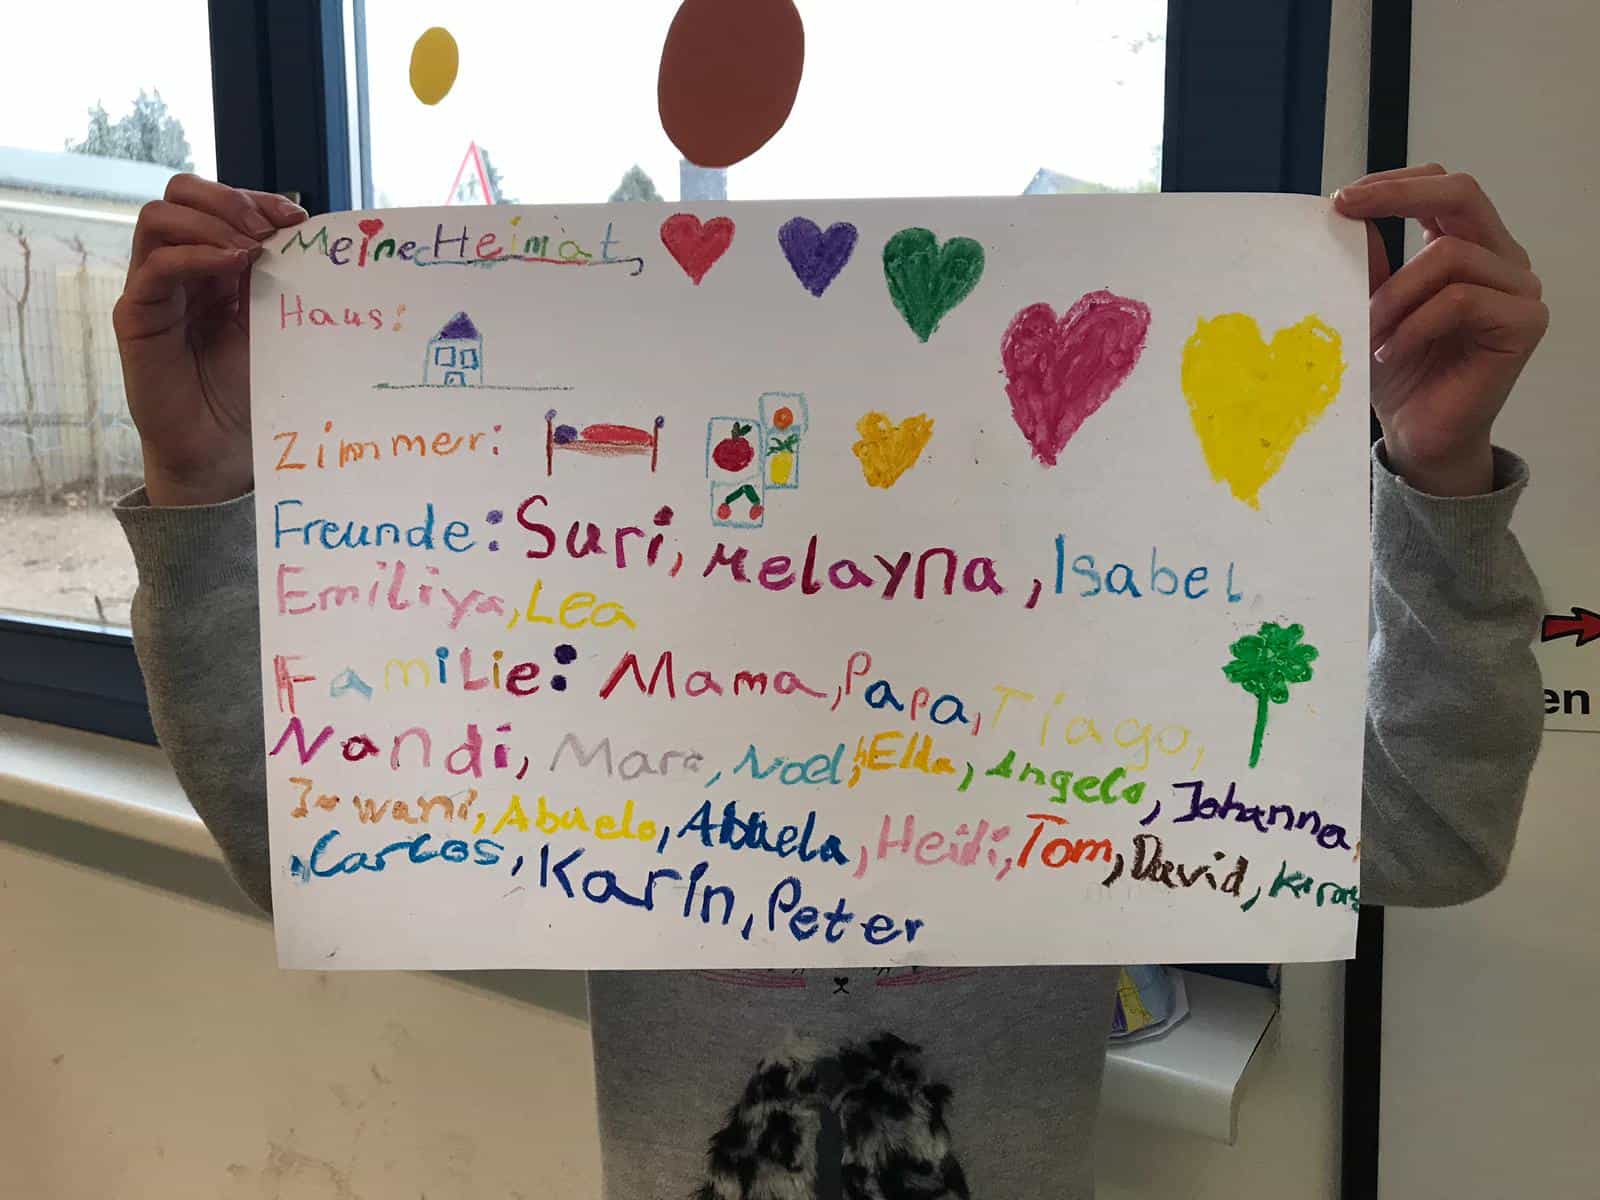 Meine Heimat
Haus:
Zimmer:
Freunde: Suri, Melayna, Isabel
Emiliya, Lea
Familie: Mama, Papa, Tiago,
Nandi, Mara, Noel, Ella, Angelo, Johanna,
Abuelo, Abuela, Heidi, Tom, David,
, Carlos, Karin, Peter
en